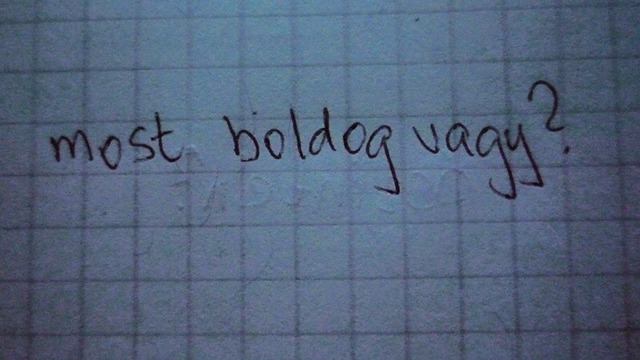 most boldog vagy?